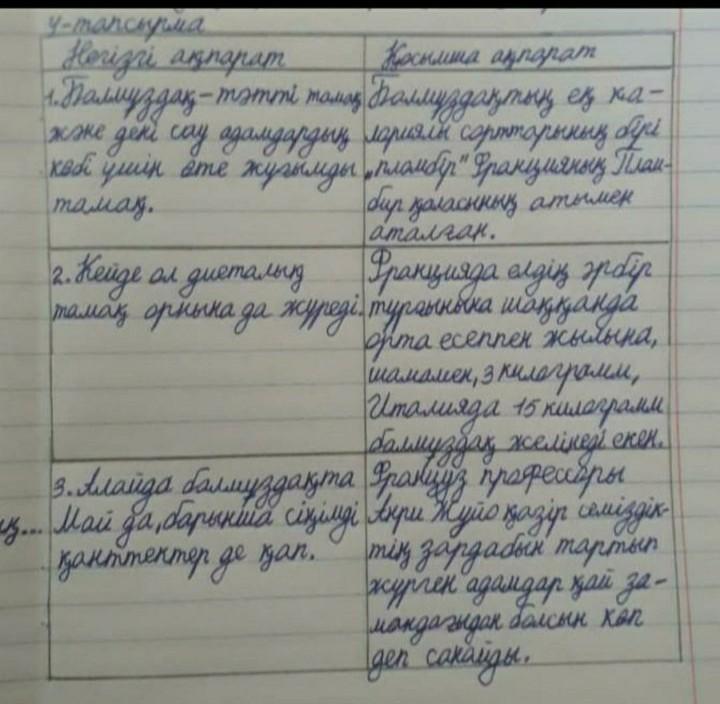 4-тапсырма
Негізгі ақпарат
Қосымша ақпарат
1. Балмұздақ – тәтті тамақ
және дені сау адамдардың
көбі үшін өте жұғымды
тамақ.
Балмұздақтың ең ка-
лориялы сорттарының бірі
„пломбір" Францияның Плом-
бир қаласының атымен
аталған.
2. Кейде ол диеталық
тамақ орнына да жүреді.
Францияда елдің әрбір
тұрғынына шаққанда
орта есеппен жылына,
шамамен, 3 килограмм,
Италияда 15 килограмм
балмұздақ желінеді екен.
3. Алайда балмұздақта
Май да, барынша сіңімді
қанттектер де қап.
Француз профессоры
Анри Жуйо қазір семіздік-
тің зардабын тартып
жүрген адамдар қай за-
мандағыдан болсын көп
деп санайды.